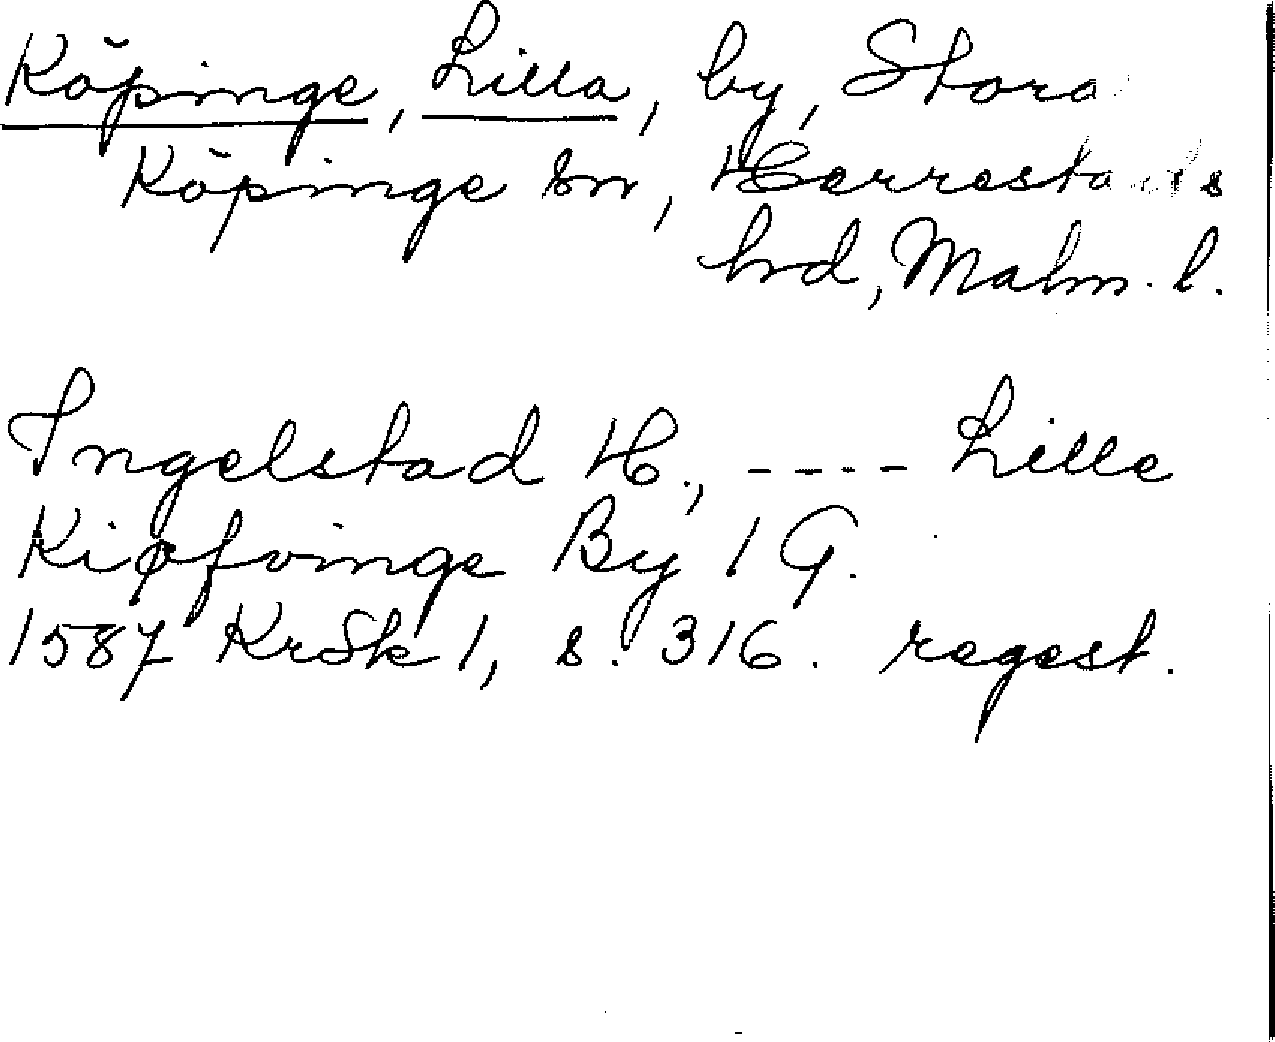 Köpinge, Lilla, by, Stora
Köpinge sn, Herrestads
hrd, Malm. l.
Ingelstad H., ---- Lille
Kiøfvinge By 1 G.
1587 KrSk 1, s. 316. regest.